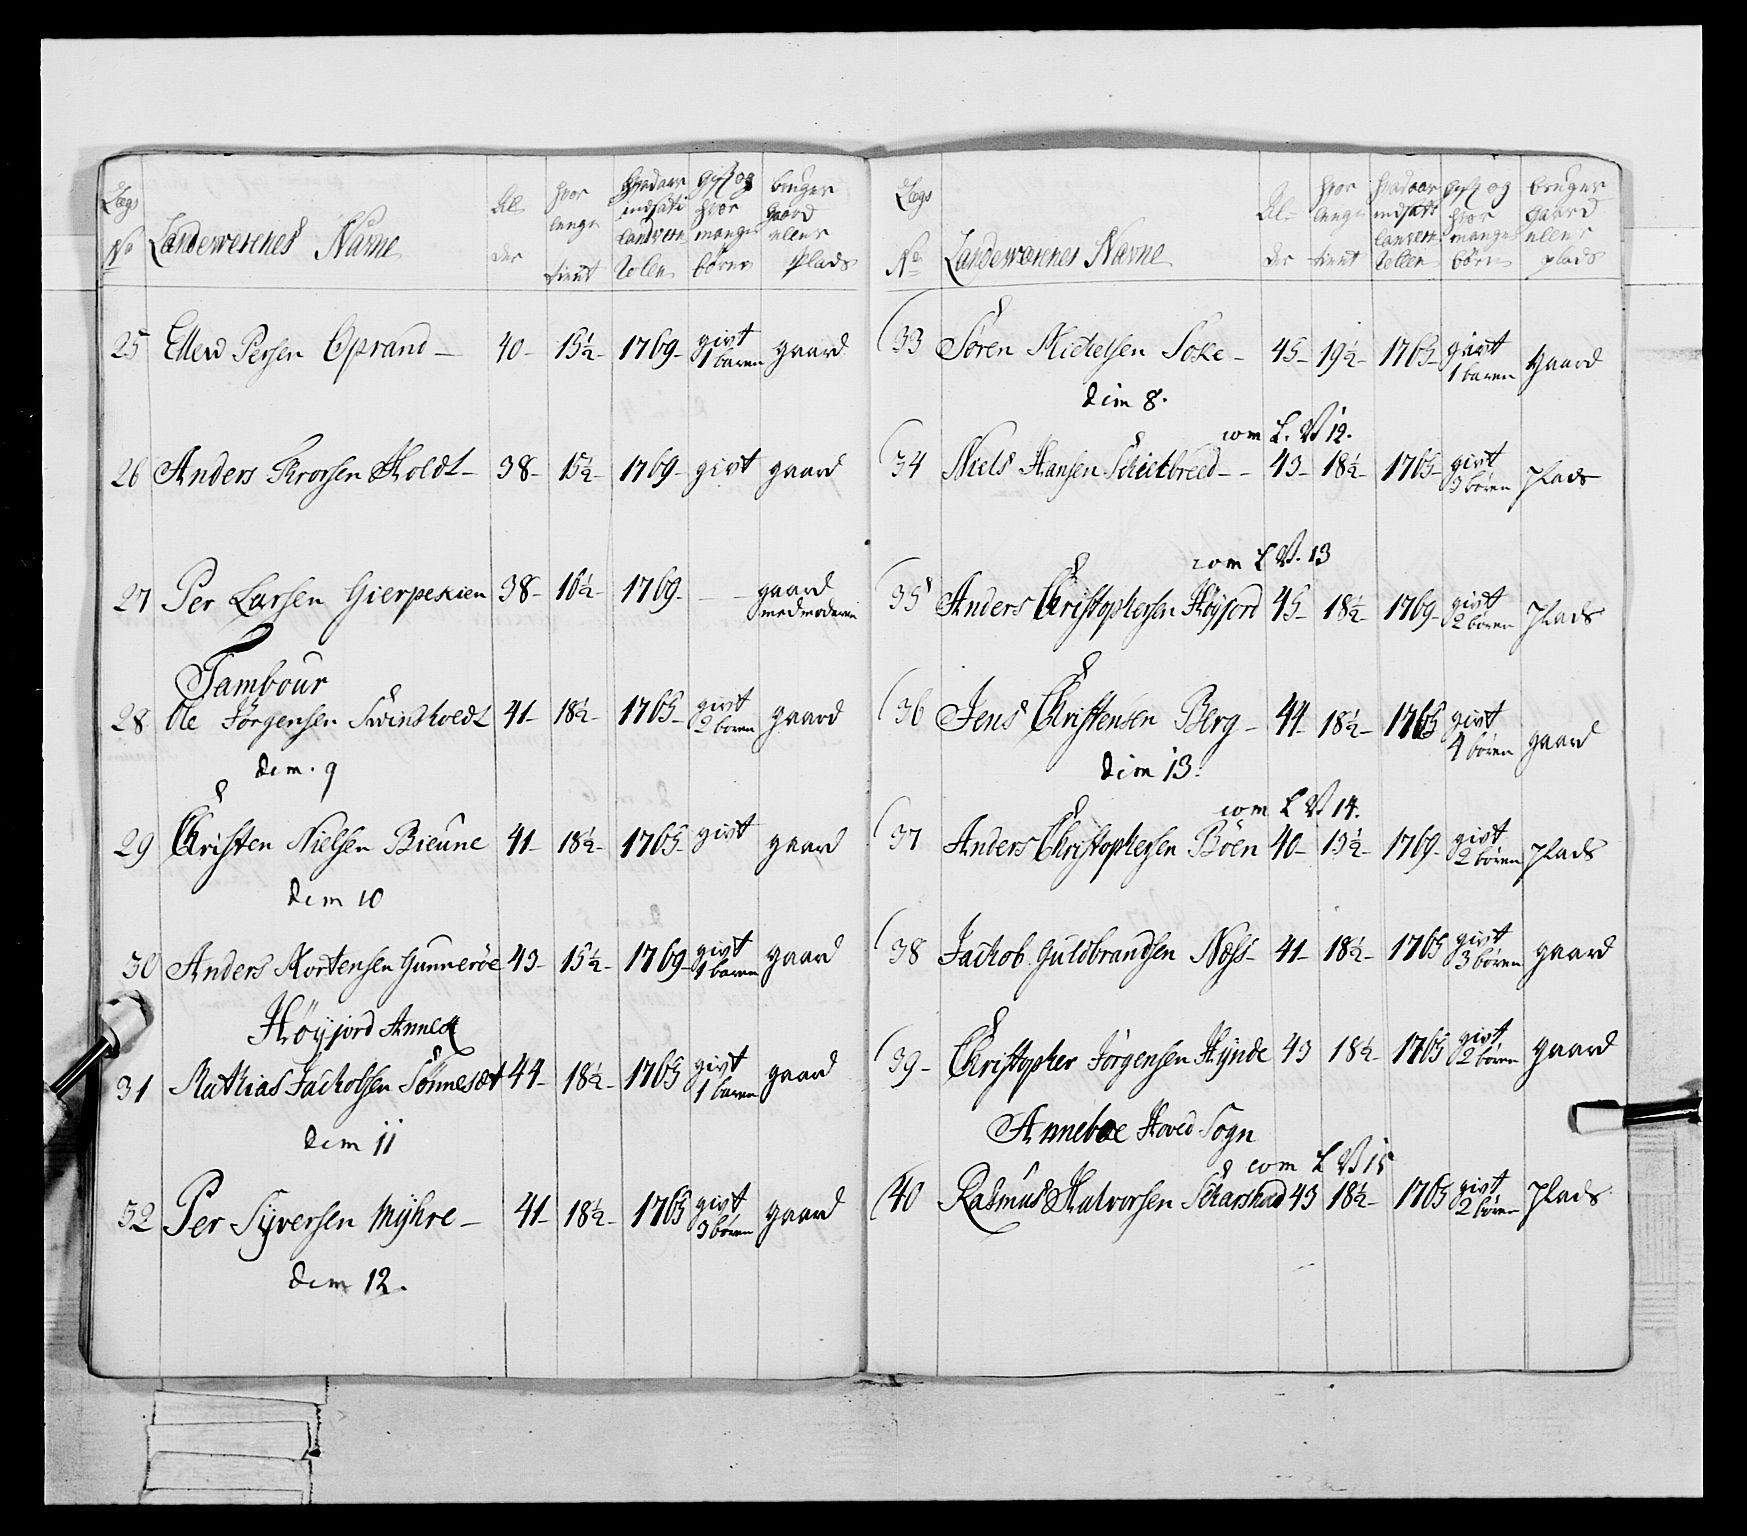 Lægs No Landeværenes Navne Alder hvor længe tient hvad aar indsatt i landverrollen gift og hvor mange børn bruger gaard eller plads
25 Ellew Persen Oprand - 40 - 15½ - 1769 - givt 1 baren gaard
26 Anders Tororsen Holdt - 38 - 15½ - 1769 - givt gaard
27 Per Larsen Gierpekien 38 - 16½ - 1769 - - gaard med moderen
Tambour
28 Ole Jørgensen Svinsholdt 41 - 18½ - 1765 - givt 2 børen gaard
dim. 9
29 Christen Nielsen Bieune 41 - 18½ - 1765 - givt gaard
dim 10
30 Anders Mortensen Gunnerøe 43 - 15½ - 1769 - givt 1 baren gaard
Høyjord Annex
31 Mathias Jackobsen Sønneset 44 - 18½ - 1765 givt 1 baren gaard
dim 11
32 Per Syversen Myhre - 41 - 18½ - 1765 givt 3 børen gaard
dim 12.
Lægs No Landeværenes Navne Alder hvor længe tient hvad aar indsatt landverrollen gift og hvor mange børn bruger gaard eller plads
33 Søren Mickelsen Soke - 45 - 19½ - 1765 - givt 1 baren gaard
dim 8.
com L. V 12.
34 Niels Hansen Schielbred - - 43 - 18½ - 1765 - givt 3 børen plads
com L V. 13
35 Anders Christophersen Høyjord 45 - 18½ - 1769 - givt 2 børen plads
36 Jens Christensen Berg - 44 - 18½ - 1765 givt 4 børen gaard
dim 13.
com L V 14.
37 Anders Christophersen Bøen 40 - 15½ - 1769 - givt 2 børen plads
38 Jackob Guldbrandsen Næss - 41 - 18½ - 1765 givt 3 børen gaard
39 - Christopher Jørgensen Hynde 43 18½ - 1765 givt 2 børen gaard
Anneboe Hoved Sogn
com L V 15
40 Rasmus Halvorsen Scharshod 43 18½ - 1765 givt 2 børen plads